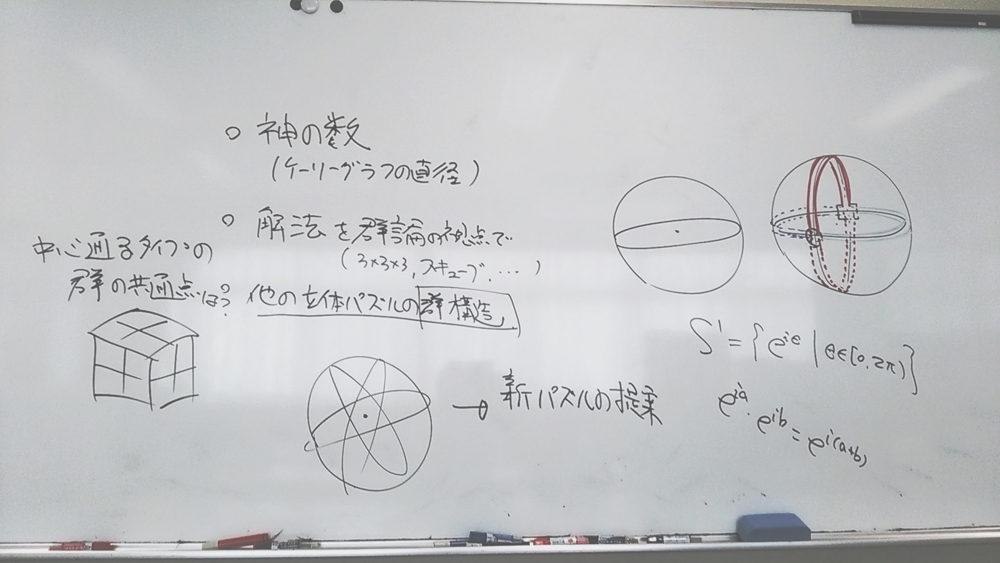 ○ 神の数
(ケーリーグラフの直径)
○ 解法を群論の視点で
(3×3×3, スキューブ, ・・・)
○ 他の立体パズルの群構造
中心通るタイプの
群の共通点は?
→ 新パズルの提案
S¹ = {e^{iθ} | θ∈[0, 2π)}
e^{ia}・e^{ib} = e^{i(a+b)}